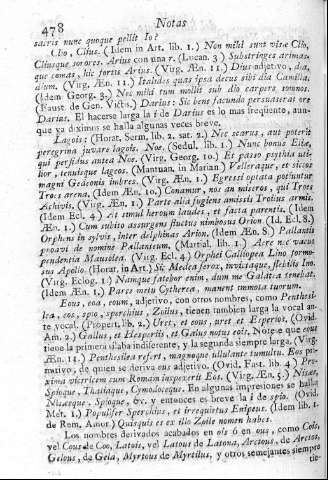 478 Notas
sacris nunc quoque pellit Io?
Clio, Clius. (Idem in Art. lib. 1.) Non mihi sunt visæ Clio,
Cliusque sorores. Arius con una r. (Lucan. 3.) Substringes arimas-
que comas, hic fortis Arius. (Virg. Æn. 11.) Dius adjetivo, dia,
dium. (Virg. Æn. 1.) Italides quas ipsa decus sibi dia Camilla.
(Idem Georg. 3.) Nec mihi tum mollit sub dio carpere somnos.
(Faust. de Gen. Victs.) Darius: Sic bens facundo persuaserat ore
Dariu. El hacerse larga la í de Darius es lo mas freqüente, aun-
que ya diximos se halla algunas veces breve.
Lagois: (Horat. Serm. lib. 2. sat. 2.) Nec scarus, aut poterit
peregrina juvare lagois. Noe. (Sedul. lib. 1.) Nunc bonus
qui perfidus antea Noe. (Virg. Georg. 10.) Et passo psythia uti-
lior, tenuisque lageos. (Mantuan. in Marian) Velleraque, et sicut
magni Gedeonis imbres. (Virg. Æn. 1.) Egressi optata potiuntur
Troes arena. (Idem Æn. 10.) Conamur, nos an miseros, qui Troas
Achivis, (Virg. Æn. 1.) Parte alia fugiens amissis Troilus armis.
(Idem Ecl. 4.) At simul heroum laudes, et facta parentis. (Idem
Æn. 1.) Cum subito assurgens fluctus nimbosus Orion (Id. Ecl. 8.)
Orpheus in sylvis, inter delphinas Arion. (Idem Æn. 8.) Pallantis
proavi de nomine Pallanteum. (Martial. lib. 1.) Aere nec vacuo
pendentia Mausolea. (Virg. Ecl. 4.) Orphei Calliopea Lino formo-
sus Apollo. (Horat. in Art.) Sit Medea ferox, invictaque, flebilis Ino.
(Virg. Eclog. 1.) Namque fatebor enim, dum me Galatea tenebat.
(Idem Æn. 1.) Parce metu Cytherea, manent immota tuorum.
Eous, eoa, eoum, adjetivo, con otros nombres, como Penthesi-
lea, eos, spio, sperchius, Zoilus, tienen tambien larga la vocal an-
te vocal. (Propert. lib. 2.) Uret, et eous, uret et Esperios. (Ovid.
Am. 2.) Gallus, et Hesperiis, et Gallus notus eois, Notese que eous
tiene la primera diaba indiferente, y la segunda siempre larga. (Virg.
Æn. 11.) Penthesilea refert, magnoque ululante tumultu. Eos pri-
mativo, de quien se deriva eus adjetivo. (Ovid. Fast. lib. 4.) Pro-
xima victricem cum Roman inspexerit Eos. (Virg. Æn. 5.) Nisæe,
Spioque, Thaliaque, Cymodoceque. En algunas impresiones se halla
Nisæeque, Spioque, &c. y entonces es breve la í de spio. (Ovid.
Met. 1.) Populifer Sperchius, et irrequietus Enipeus. (Idem lib. 1.
de Rem. Amor.) Quisquis es ex illo Zoile nomen habes.
Los nombres derivados acabados en ois ó en ous, como Cois,
vel Cous de Coo, Latois, vel Latous de Latona, Arctous, de Arctos,
Gelous, de Gela, Myrtous de Myrtilus, y otros semejantes siempre
tie-